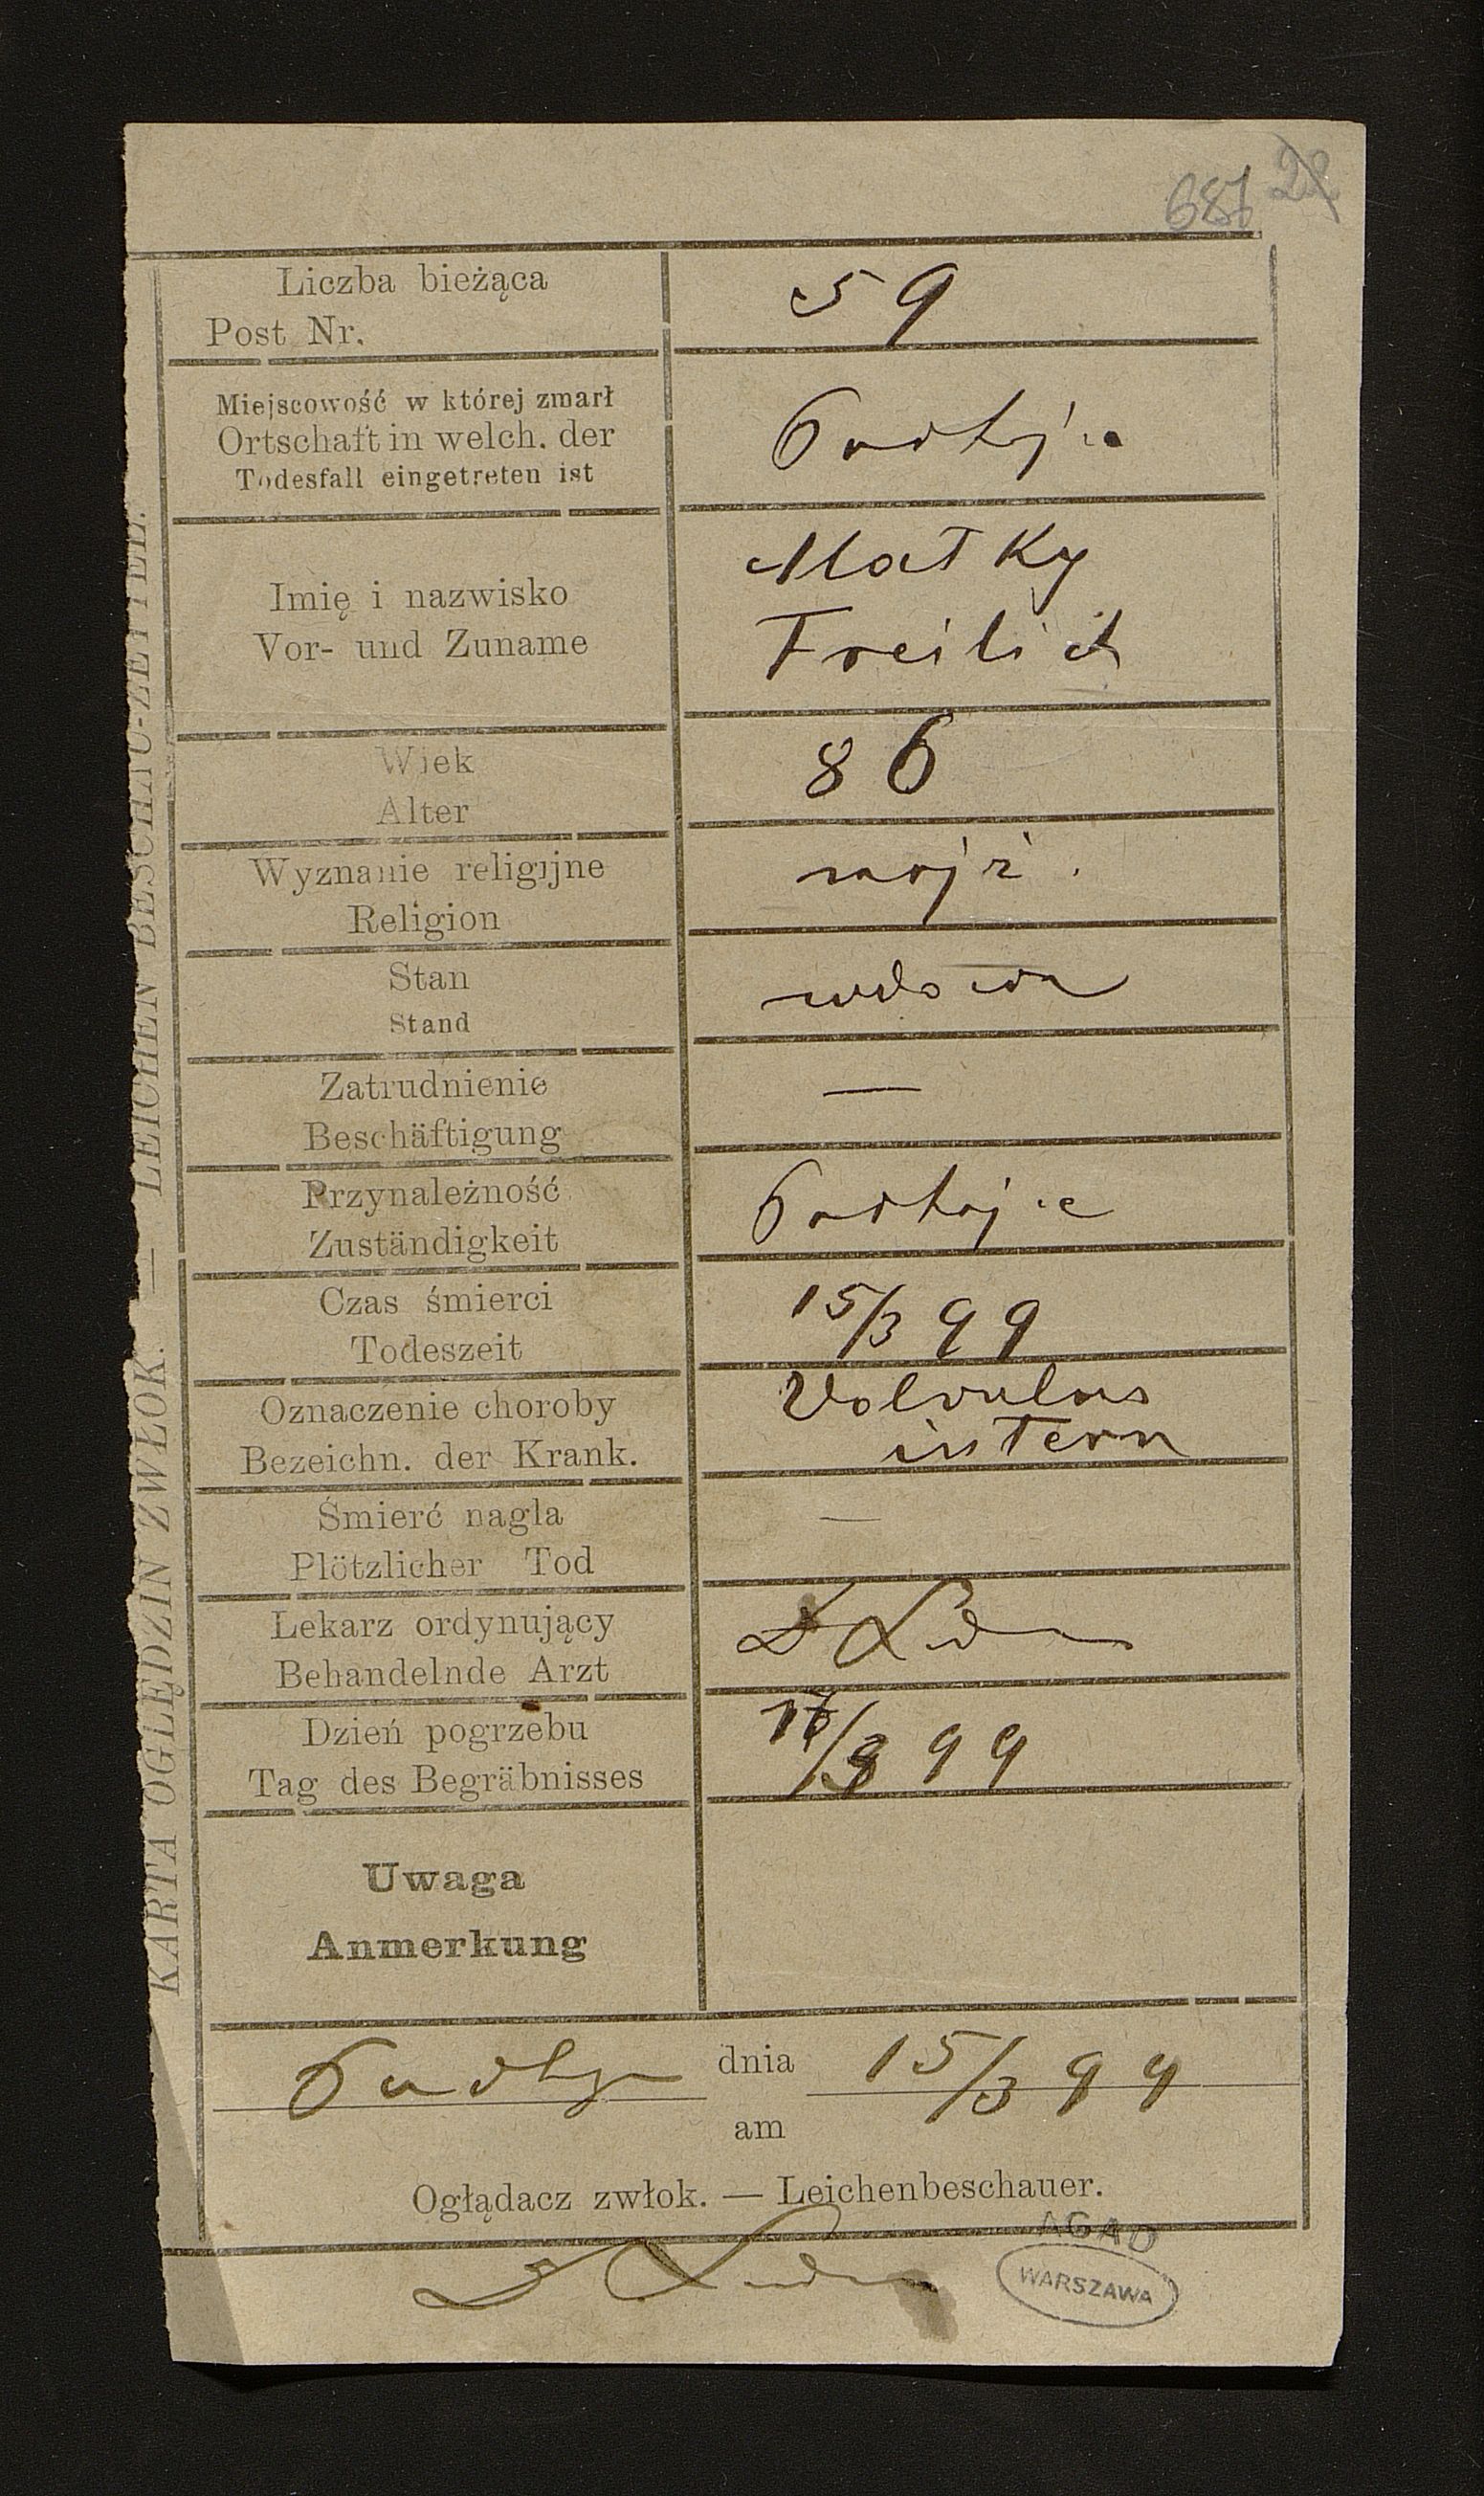 59
Liczba bieżąca
Post Nr.
Miejscowość w której zmarł
Ortschaft in welch. der
Todesfall eingetreten ist
Imię i nazwisko
Vor- und Zuname
Matky
Freilich
Wiek
Alter
86
Wyznanie religijne
Religion
mojż.
Stan
Stand
wdowa
Zatrudnienie
Beschäftigung
—
Przynależność
Zuständigkeit
Podhajce
Czas śmierci
Todeszeit
15/3 99
Oznaczenie choroby
Bezeichn. der Krank.
Volvulus
intern
Śmierć nagla
Plötzlicher Tod
—
Lekarz ordynujący
Behandelnde Arzt
Dzień pogrzebu
Tag des Begräbnisses
99
Uwaga
Anmerkung
dnia 15/3 99
am
Oglądacz zwłok. — Leichenbeschauer.
AGAD
WARSZAWA
KARTA OGLĘDZIN ZWŁOK. — LEICHEN BESCHAU-ZETTEL.